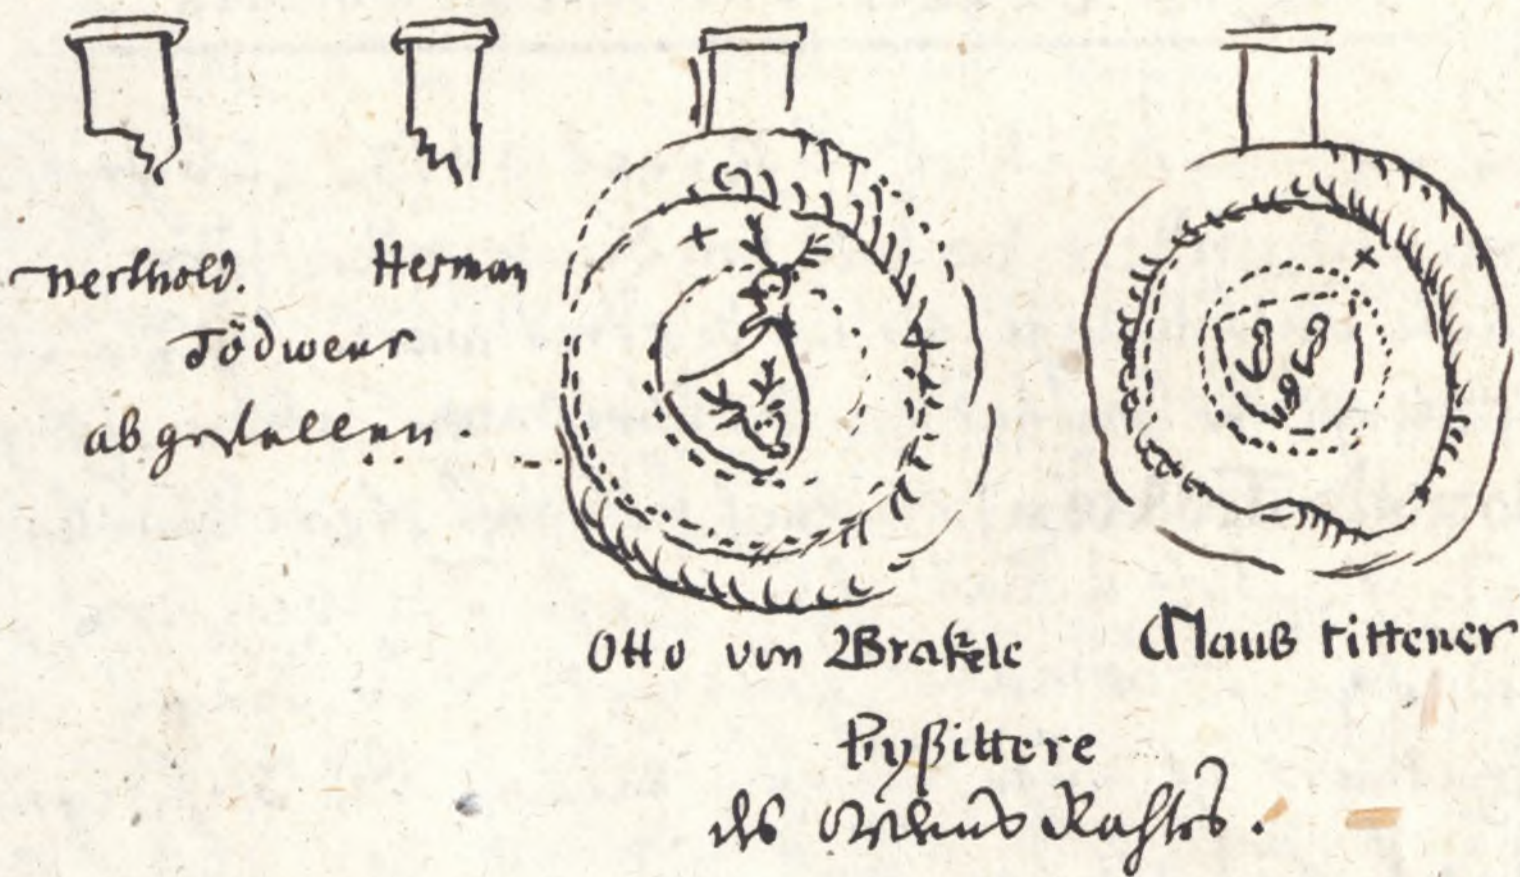 Berthold. Herman
Tödwen
abgefallen.
Otto von Brakele Clauß rittener
byßittere
des Rahtes.